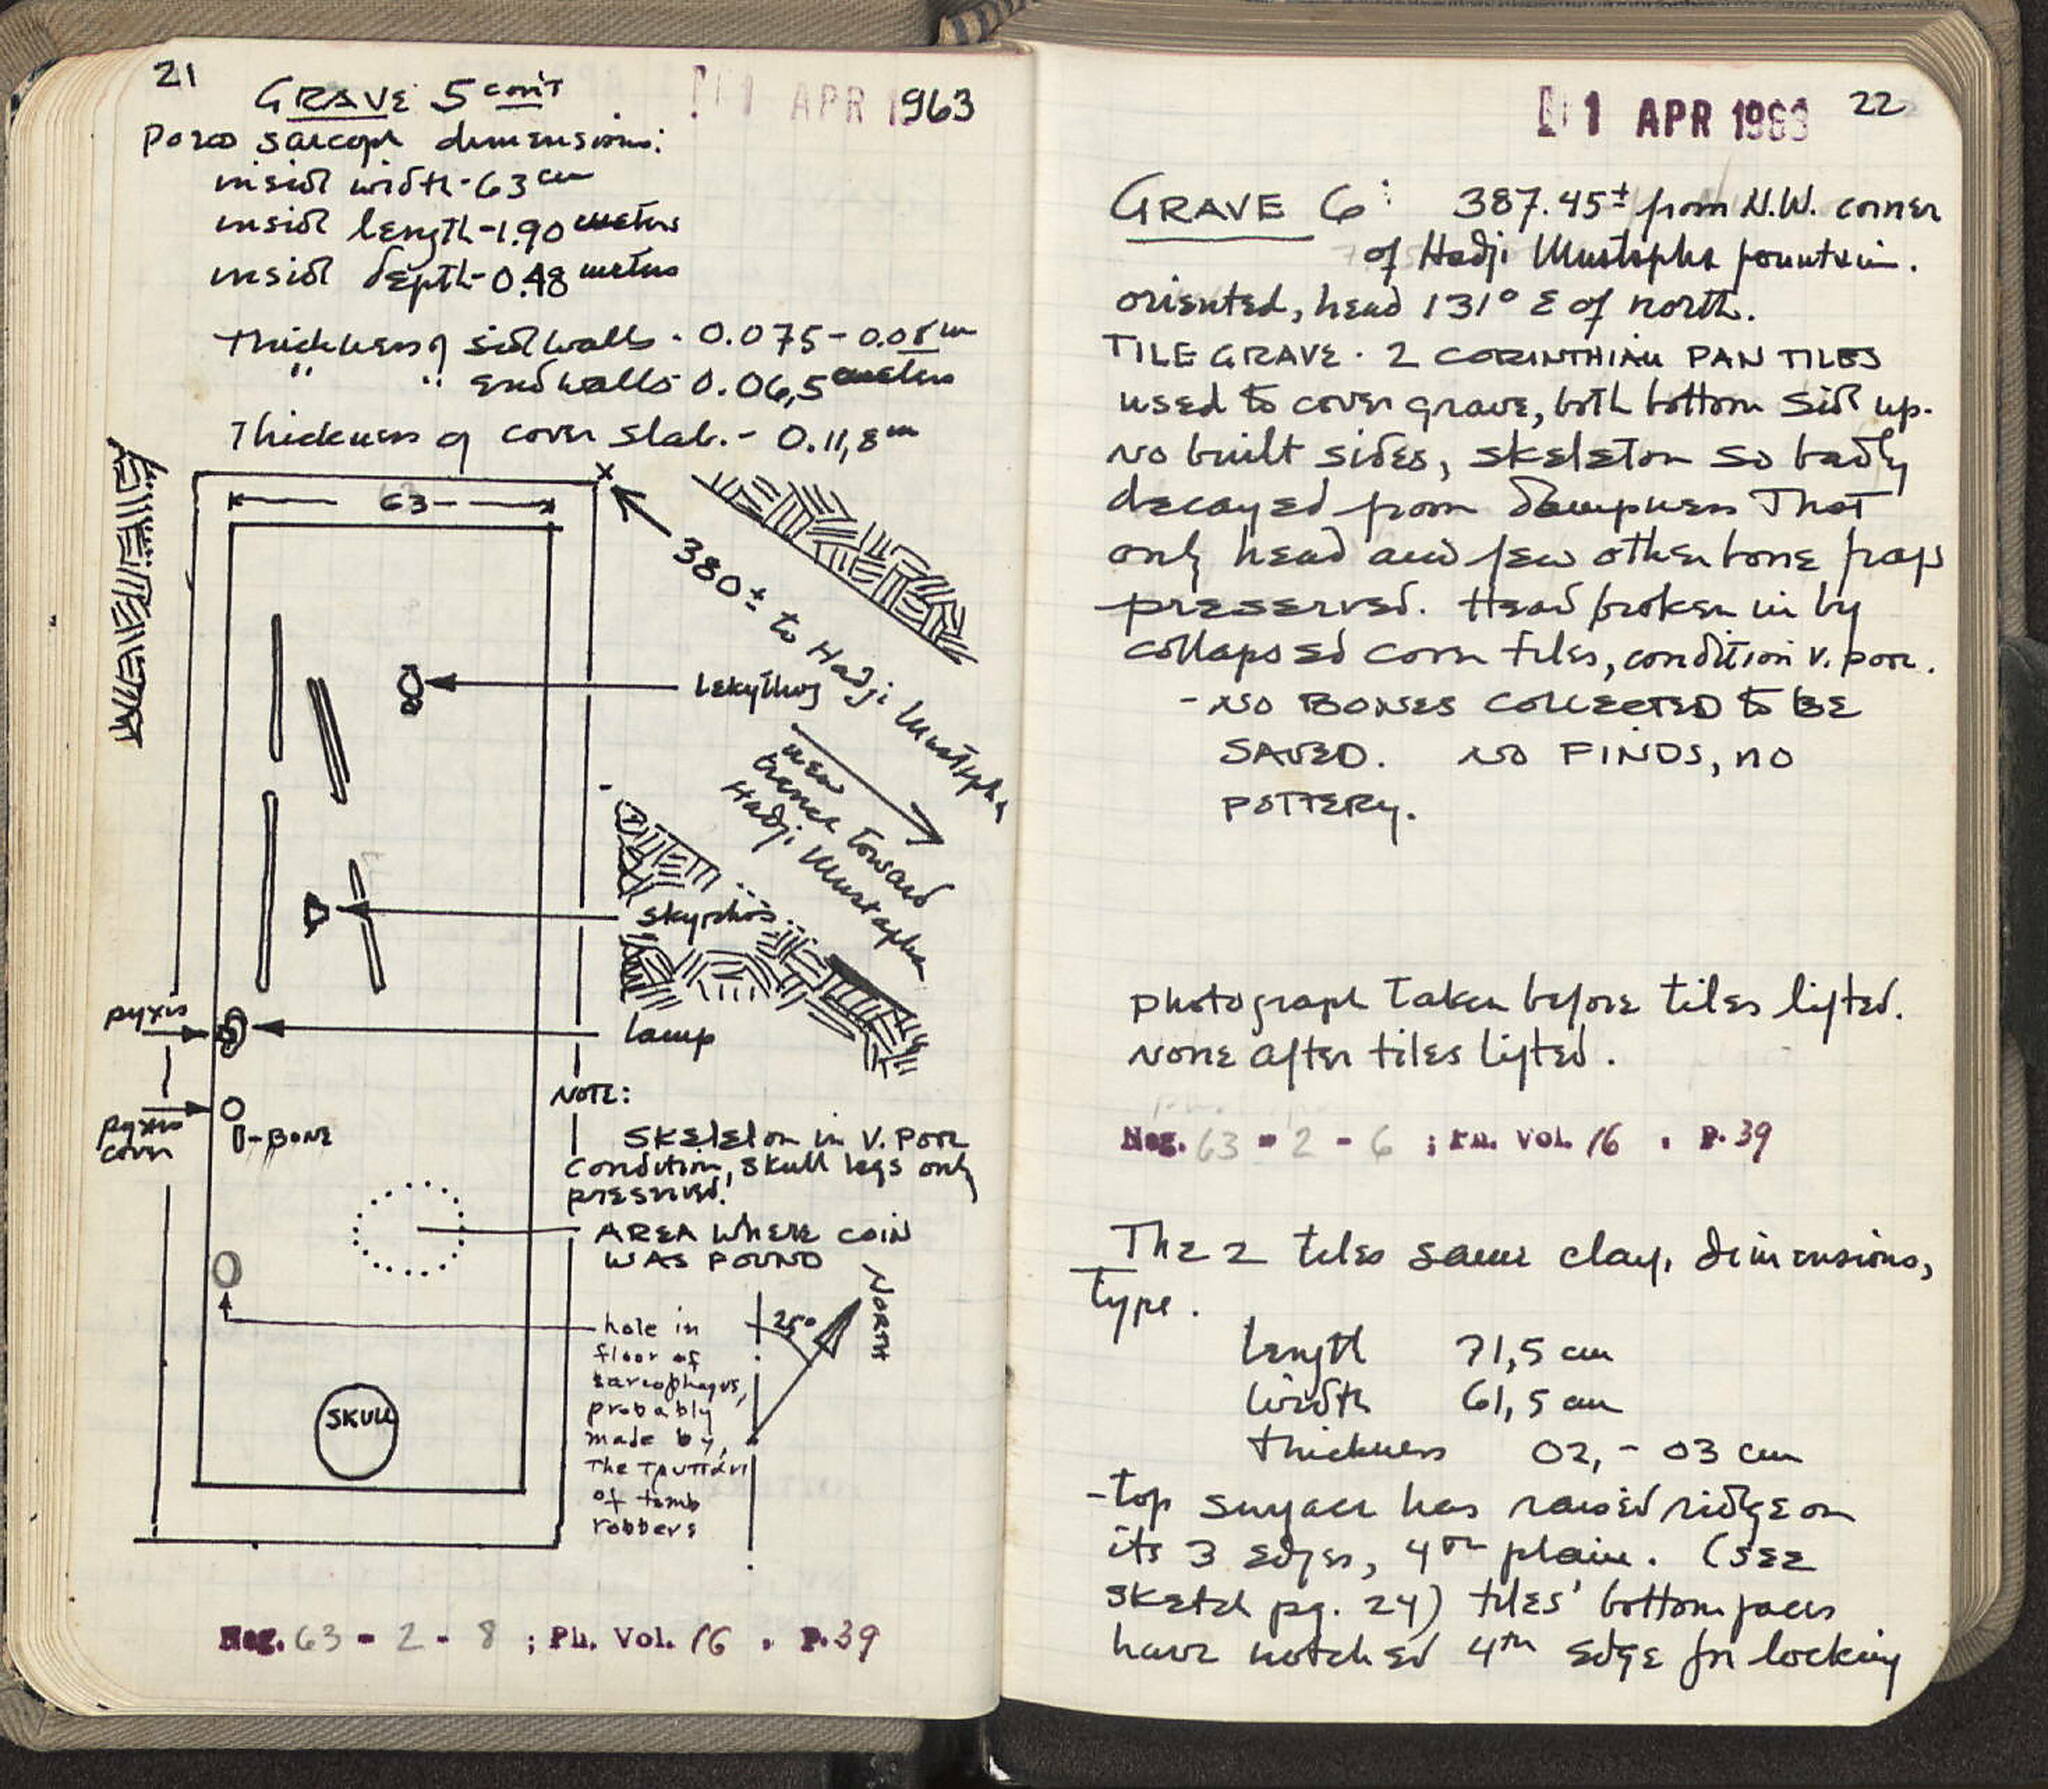 21
GRAVE 5 con't
1 APR 1963
Poros sarcoph dimensions:
inside width - 63 cm
inside length - 1.90 meters
inside depth - 0.48 meters
Thickness of side walls - 0.075 - 0.08 m
" " end walls 0.06,5 meters
Thickness of cover slab. - 0.11,8 m
63
X
380± to Hadji Mustapha
lekythos
new
trench toward
Hadji Mustapha
skyphos
pyxis
lamp
NOTE:
pyxis
cover
BONE
SKELETON in V. POOR
condition, skull legs only
preserved!
AREA WHERE COIN
WAS FOUND
NORTH
25°
hole in
floor of
sarcophagus,
probably
made by,
The Τρυπάνι
of tomb
robbers
SKULL
Neg. 63 - 2 - 8 ; Ph. Vol. 16 . P. 39
1 APR 1963
22
GRAVE 6: 387.45± from N.W. corner
of Hadji Mustapha fountain.
oriented, head 131° E of north.
TILE GRAVE. 2 CORINTHIAN PAN TILES
used to cover grave, both bottom side up.
No built sides, skeleton so badly
decayed from dampness That
only head and few other bone frags
preserved. Head broken in by
collapsed corn tiles, condition v. poor.
- NO BONES COLLECTED to BE
SAVED. NO FINDS, NO
POTTERY.
photograph Taken before tiles lifted.
None after tiles lifted.
Neg. 63 - 2 - 6 ; Ph. Vol. 16 . P. 39
The 2 tiles same clay, dimensions,
type.
length 71,5 cm
width 61,5 cm
thickness 02, - 03 cm
- top surface has raised ridge on
its 3 edges, 4th plain. (SEE
sketch pg. 24) tiles' bottom faces
have notched 4th edge for locking